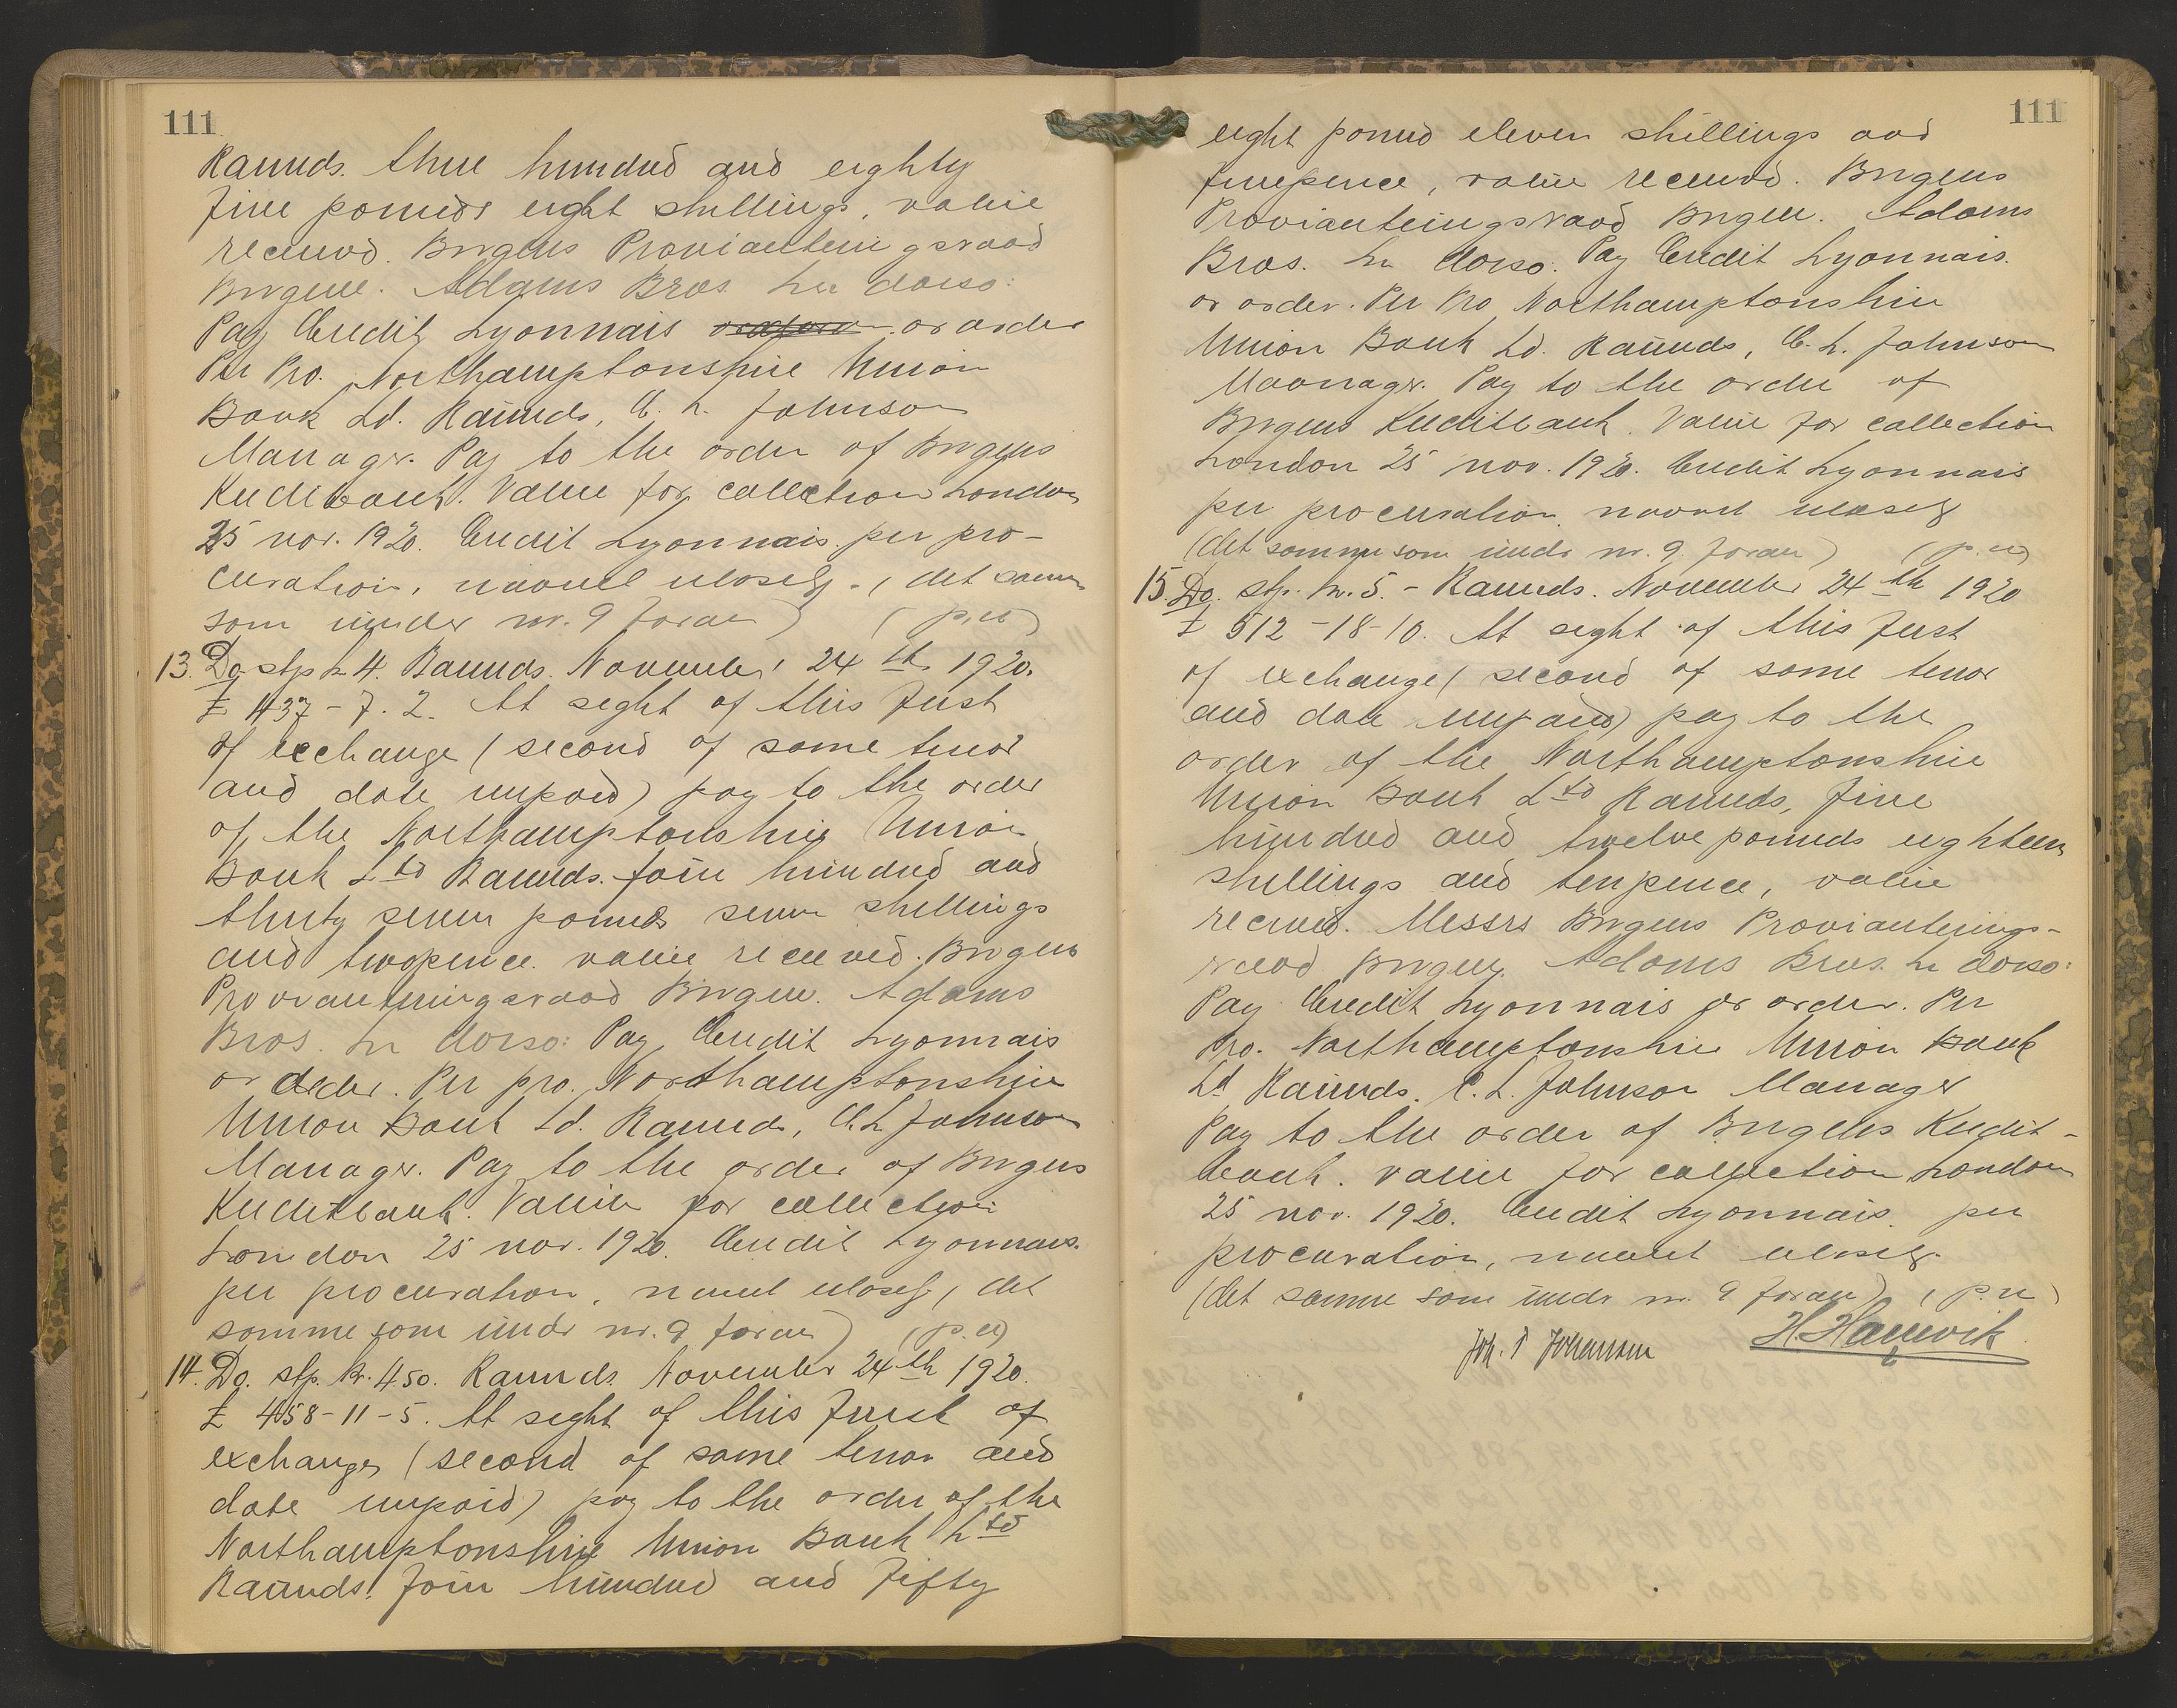 111
Raunds. three hundred and eighty
five pounds eight shillings, value
received. Bergens Provianteringsraad
Bergen. Adams Bros. In dorso:
Pay Credit Lyonnais or order
Per Pro. Northamptonshire Union
Bank Ld. Raunds, C. L. Johnson
Manager. Pay to the order of Bergens
Kreditbank. Value for collection London
25 nov. 1920. Credit Lyonnais per pro-
curation, navnet ulæselig. (det samme
som under nr. 9 foran) (p.u)
13. Do. stp. kr. 4. Raunds. November 24th 1920.
£ 437-7.2. At sight of this First
of exchange (second of same tenor
and date unpaid) pay to the order
of the Northamptonshire Union
Bank Ltd Raunds. four hundred and
thirty seven pounds seven shillings
and twopence. value received. Bergens
Provianteringsraad Bergen. Adams
Bros. In dorso: Pay Credit Lyonnais
or order. Per pro. Northamptonshire
Union Bank Ld. Raunds, C. L. Johnson
Manager. Pay to the order of Bergens
Kreditbank. Value for collection
London 25 nov. 1920. Credit Lyonnais.
per procuration, navnet ulæselig, (det
samme som under nr. 9 foran) (p.u)
14. Do. stp. kr. 4.50. Raunds November 24th 1920.
£ 458-11-5. At sight of this First of
exchange (second of same tenor and
date unpaid) pay to the order of the
Northamptonshire Union Bank Ltd
Raunds. Four hundred and Fifty
111
eight pound eleven shillings and
fivepence, value received. Bergens
Provianteringsraad Bergen. Adams
Bros. In dorso: Pay Credit Lyonnais.
or order. Per Pro Northamptonshire
Union Bank Ld. Raunds, C. L. Johnson
Maonager. Pay to the order of
Bergens Kreditbank. Value for collection
London 25 nov. 1920. Credit Lyonnais
per procuration, navnet ulæselig
(det samme som under nr. 9. foran) (p.u)
15. Do. stp. kr. 5. - Raunds. November 24th 1920
£ 512-18-10. At sight of this First
of exchange (second of same tenor
and date unpaid) pay to the
order of the Northamptonshire
Union Bank Ltd Raunds, five
hundred and twelve pounds eighteen
shillings and tenpence, value
received. Messrs Bergens Provianterings-
raad Bergen. Adams Bros. In dorso:
Pay Credit Lyonnais or order. Per
Pro. Northamptonshire Union Bank
Ld Raunds. C. L. Johnson Manager
Pay to the order of Bergens Kredit-
bank. Value for collection London
25 nov. 1920. Credit Lyonnais. per
procuration, navnet ulæselig.
(det samme som under nr. 9 foran) (p.u)
Joh. P Johannson